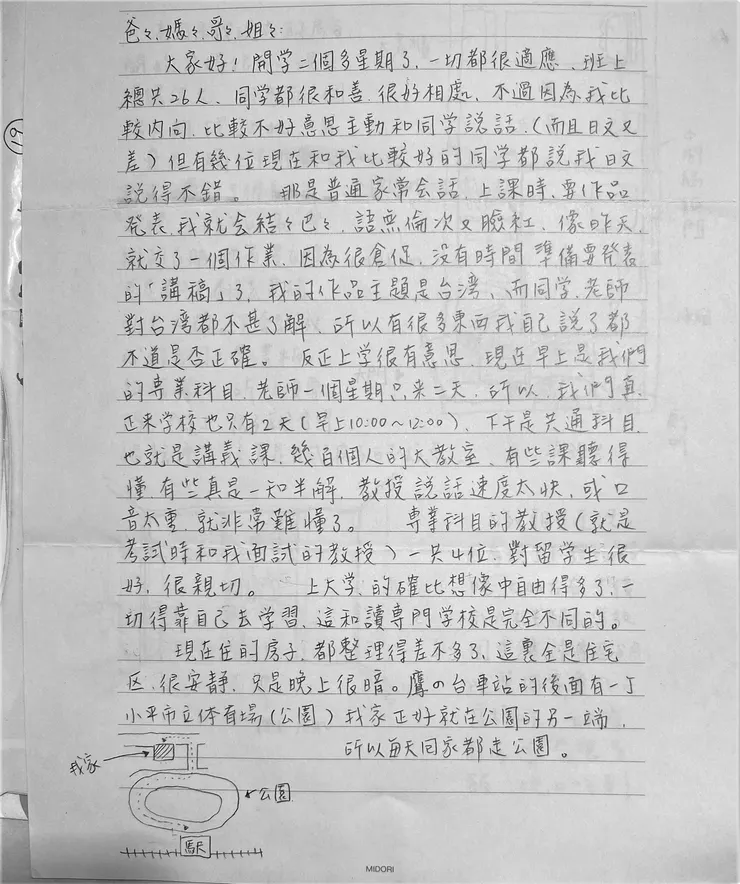 爸々、媽々、哥々、姐々:
大家好！開学二個多星期了、一切都很適應、班上
總共26人、同学都很和善、很好相處、不過因為我比
較內向、比較不好意思主動和同学說話、(而且日文又
差) 但有幾位現在和我比較好的同学都說我日文
說得不錯。 那是普通家常会話、上課時、要作品
発表、我就会結々巴々、語無倫次又臉紅、像昨天、
就交了一個作業、因為很倉促、沒有時間準備要発表
的「講稿」了、我的作品主題是台湾、而同学、老師
對台湾都不甚了解、所以有很多東西我自己說了都
不道是否正確。 反正上学很有意思、現在早上是我們
的専業科目、老師一個星期只来二天、所以、我們真
正来学校也只有2天(早上10:00～12:00)、下午是共通科目
也就是講義課、幾百個人的大教室、有些課聽得
懂有些真是一知半解、教授說話速度太快、或口
音太重、就非常難懂了。 専業科目的教授(就是
考試時和我面試的教授)一共4位、對留学生很
好、很親切。 上大学、的確比想像中自由得多了、一
切得靠自己去学習、這和讀専門学校是完全不同的。
現在住的房子、都整理得差不多了、這裏全是住宅
区、很安靜、只是晚上很暗。鷹の台車站的後面有一个
小平市立体育場(公園)我家正好就在公園的另一端、
所以每天回家都走公園。
我家
公園
駅
MIDORI